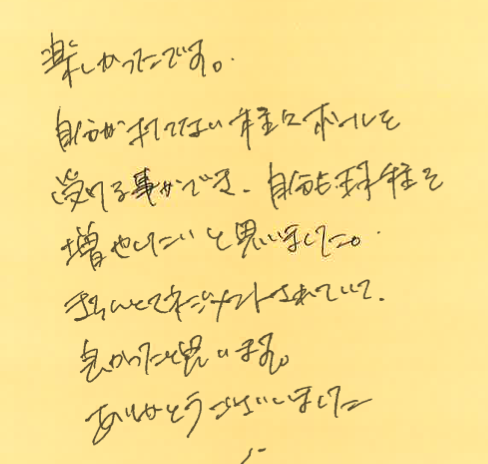 楽しかったです。
自分が打てない種々ボールを
受ける事ができ、自分も球種を
増やしたいと思いました。
きちんとマネジメントされていて、
良かったと思います。
ありがとうございました